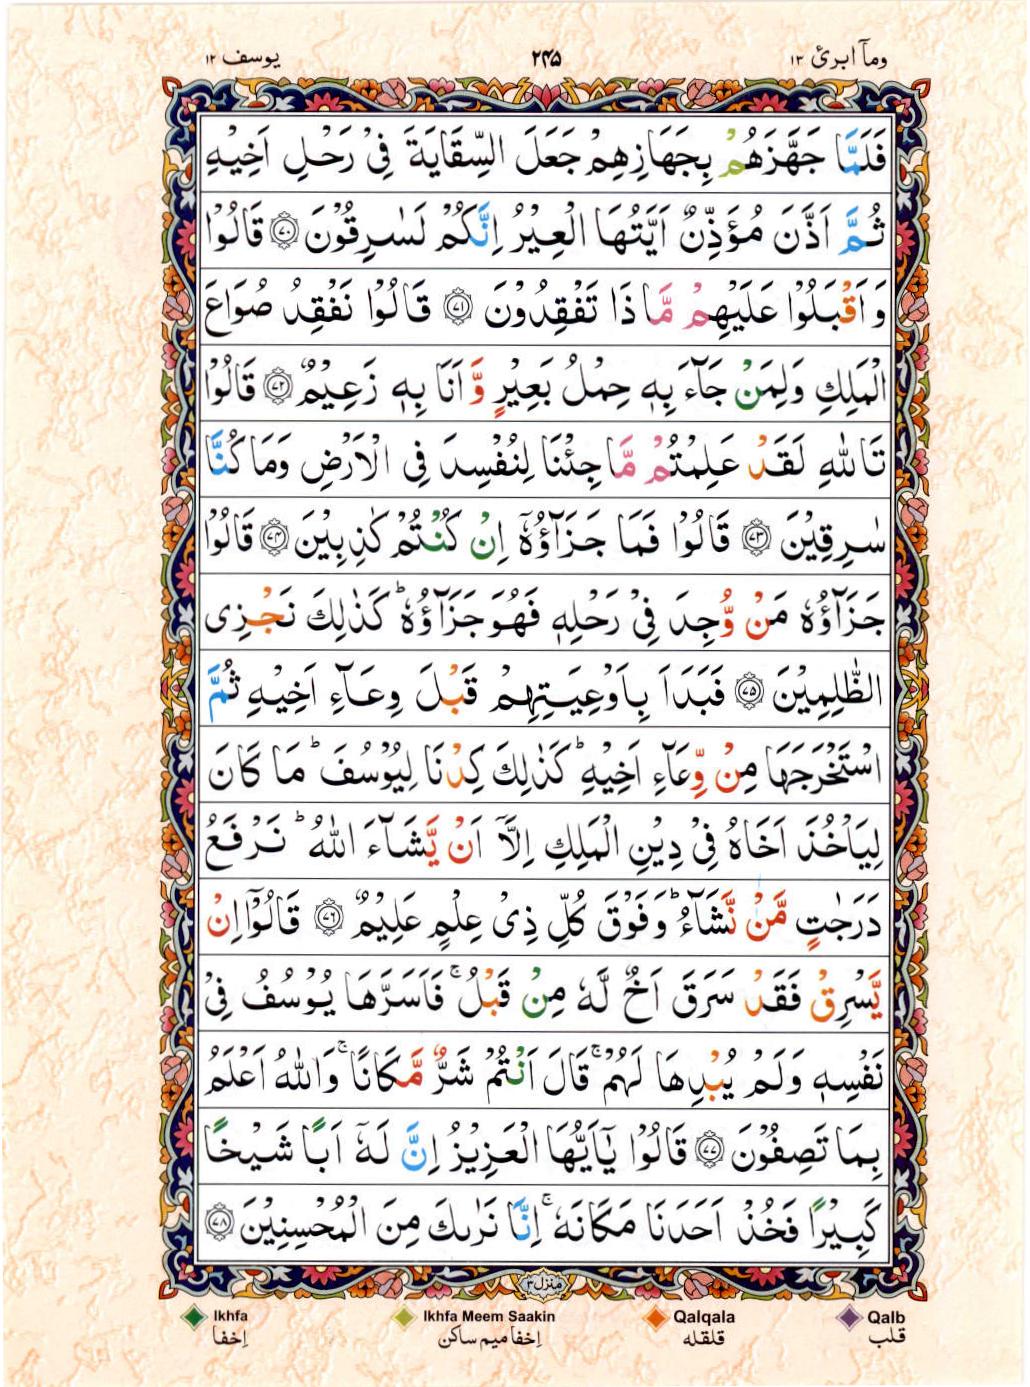 ومآ ابرئ ١٣ ٢٤٥ يوسف ١٢
فَلَمَّا جَهَّزَهُمْ بِجَهَازِهِمْ جَعَلَ السِّقَايَةَ فِىْ رَحْلِ اَخِيْهِ
ثُمَّ اَذَّنَ مُؤَذِّنٌ اَيَّتُهَا الْعِيْرُ اِنَّكُمْ لَسٰرِقُوْنَ ﴿٧٠﴾ قَالُوْا
وَاَقْبَلُوْا عَلَيْهِمْ مَّاذَا تَفْقِدُوْنَ ﴿٧١﴾ قَالُوْا نَفْقِدُ صُوَاعَ
الْمَلِكِ وَلِمَنْ جَآءَ بِهٖ حِمْلُ بَعِيْرٍ وَّاَنَا بِهٖ زَعِيْمٌ ﴿٧٢﴾ قَالُوْا
تَاللّٰهِ لَقَدْ عَلِمْتُمْ مَّا جِئْنَا لِنُفْسِدَ فِى الْاَرْضِ وَمَا كُنَّا
سٰرِقِيْنَ ﴿٧٣﴾ قَالُوْا فَمَا جَزَآؤُهٗۤ اِنْ كُنْتُمْ كٰذِبِيْنَ ﴿٧٤﴾ قَالُوْا
جَزَآؤُهٗ مَنْ وُّجِدَ فِىْ رَحْلِهٖ فَهُوَ جَزَآؤُهٗ ؕ كَذٰلِكَ نَجْزِى
الظّٰلِمِيْنَ ﴿٧٥﴾ فَبَدَاَ بِاَوْعِيَتِهِمْ قَبْلَ وِعَآءِ اَخِيْهِ ثُمَّ
اسْتَخْرَجَهَا مِنْ وِّعَآءِ اَخِيْهِ ؕ كَذٰلِكَ كِدْنَا لِيُوْسُفَ ؕ مَا كَانَ
لِيَاْخُذَ اَخَاهُ فِىْ دِيْنِ الْمَلِكِ اِلَّاۤ اَنْ يَّشَآءَ اللّٰهُ ؕ نَرْفَعُ
دَرَجٰتٍ مَّنْ نَّشَآءُ ؕ وَفَوْقَ كُلِّ ذِىْ عِلْمٍ عَلِيْمٌ ﴿٧٦﴾ قَالُوْۤا اِنْ
يَّسْرِقْ فَقَدْ سَرَقَ اَخٌ لَّهٗ مِنْ قَبْلُ ۚ فَاَسَرَّهَا يُوْسُفُ فِىْ
نَفْسِهٖ وَلَمْ يُبْدِهَا لَهُمْ ۚ قَالَ اَنْتُمْ شَرٌّ مَّكَانًا ۚ وَاللّٰهُ اَعْلَمُ
بِمَا تَصِفُوْنَ ﴿٧٧﴾ قَالُوْا يٰۤاَيُّهَا الْعَزِيْزُ اِنَّ لَهٗۤ اَبًا شَيْخًا
كَبِيْرًا فَخُذْ اَحَدَنَا مَكَانَهٗ ۚ اِنَّا نَرٰىكَ مِنَ الْمُحْسِنِيْنَ ﴿٧٨﴾
منزل ٣
Ikhfa Ikhfa Meem Saakin Qalqala Qalb
اِخفا اِخفا میم ساکن قلقله قلب